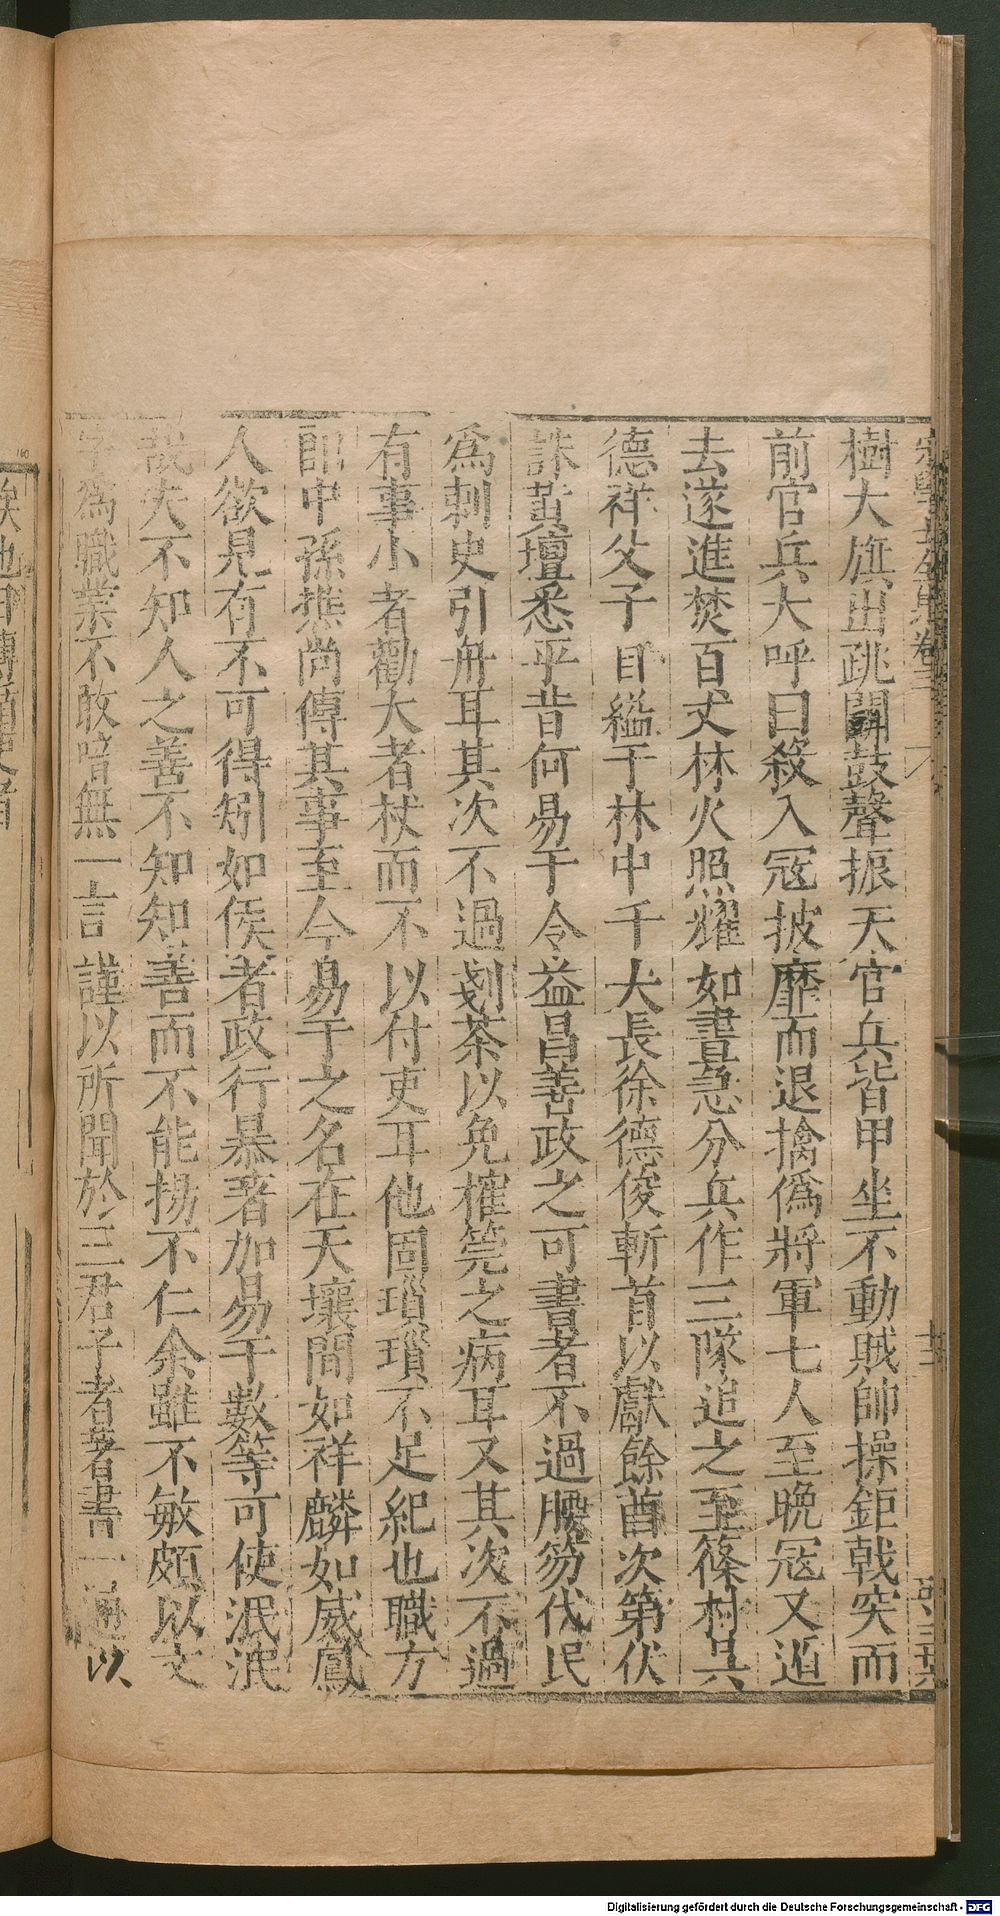 樹大旗出跳鬬鼓聲振天官兵皆甲坐不動賊帥操鉅戟突而
前官兵大呼曰殺入寇披靡而退擒僞將軍七人至晩寇又遁
去遂進焚百丈林火照耀如晝急分兵作三隊追之至篠村吳
德祥父子自縊于林中千犬長徐德俊斬首以獻餘酋次第伏
誅黃壇悉平昔何易于令益昌善政之可書者不過腰笏代民
爲刺史引舟耳其次不過剗茶以免榷筦之病耳又其次不過
有事小者勸大者杖而不以付吏耳他固瑣瑣不足紀也職方
郎中孫樵尚傳其事至今易于之名在天壤間如祥麟如威鳳
人欲見有不可得矧如侯者政行暴著加易于數等可使泯泯
哉夫不知人之善不知知善而不能揚不仁余雖不敏頗以文
字爲職業不敢喑無一言謹以所聞於三君子者著書一通以
宋學士全集卷三
十二
侯也
Digitalisierung gefördert durch die Deutsche Forschungsgemeinschaft - DFG